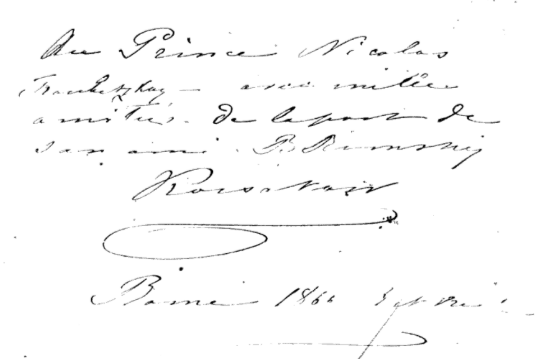 Au Prince Nicolas
Troubetzkoy — avec mille
amitiés. de la part de
son ami. P. Rimsky
Korsakoff
Rome 1866